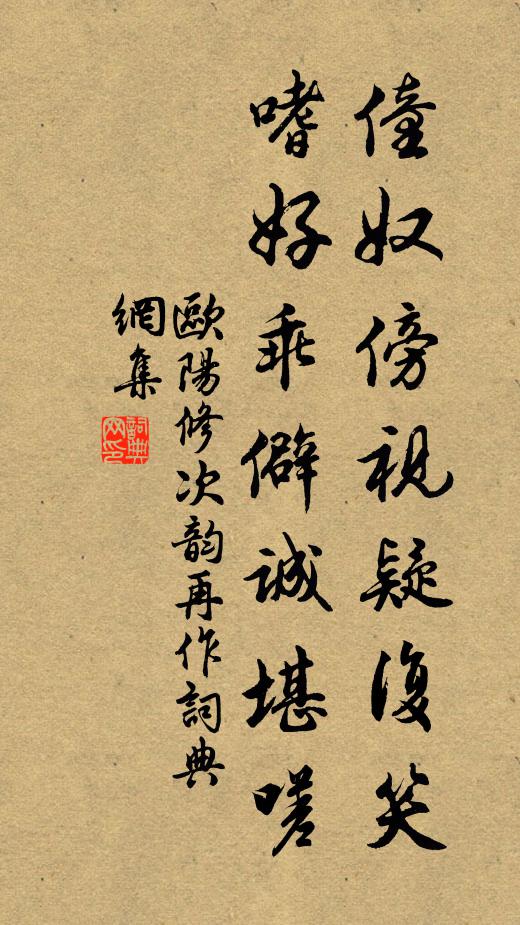 僮奴傍視疑復笑
嗜好乖僻誠堪嗟
歐陽修次韵再作詞典
網集
詞典网印